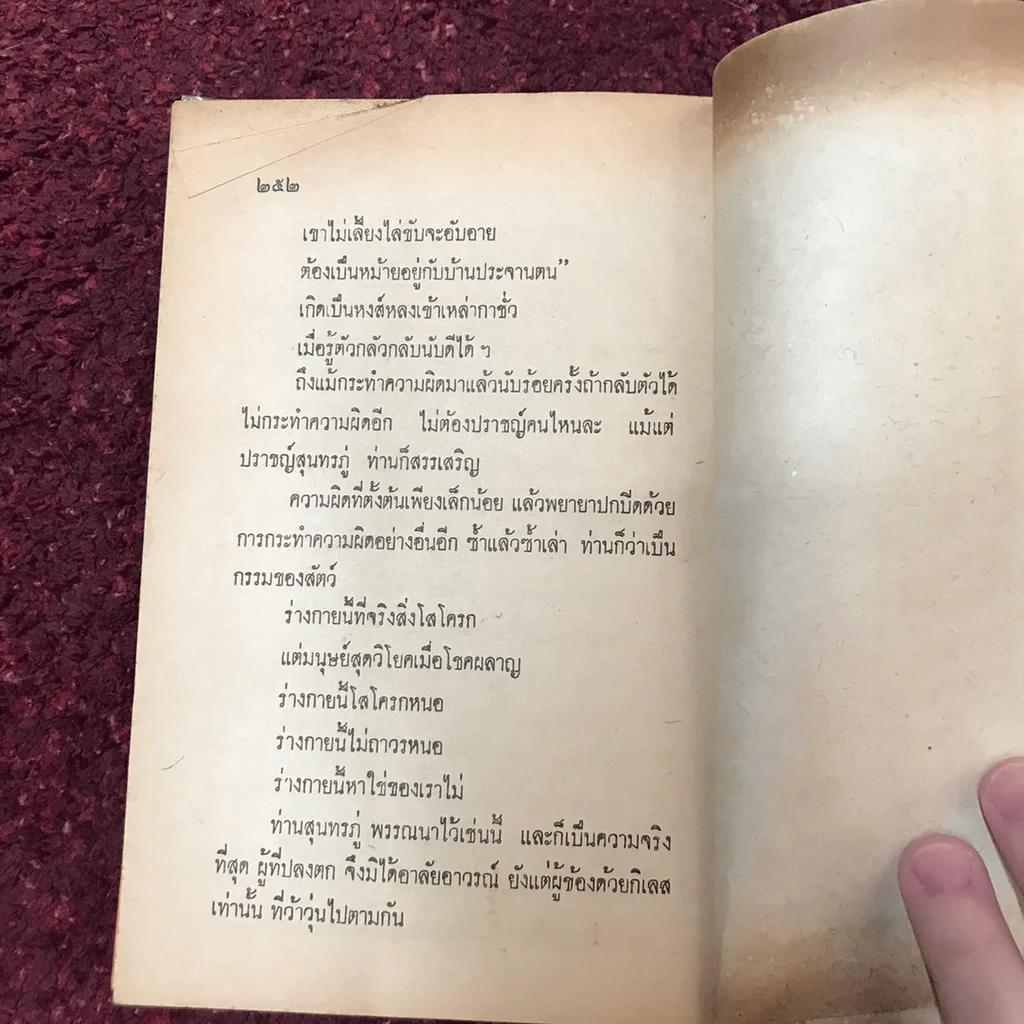 ๒๕๒
เขาไม่เลี้ยงไล่ขับจะอับอาย
ต้องเป็นหม้ายอยู่กับบ้านประจานตน”
เกิดเป็นหงส์หลงเข้าเหล่ากาชั่ว
เมื่อรู้ตัวกลัวกลับนับดีได้ ฯ
ถึงแม้กระทำความผิดมาแล้วนับร้อยครั้งถ้ากลับตัวได้
ไม่กระทำความผิดอีก ไม่ต้องปราชญ์คนไหนละ แม้แต่
ปราชญ์สุนทรภู่ ท่านก็สรรเสริญ
ความผิดที่ตั้งต้นเพียงเล็กน้อย แล้วพยายาปกปีดด้วย
การกระทำความผิดอย่างอื่นอีก ซ้ำแล้วซ้ำเล่า ท่านก็ว่าเป็น
กรรมของสัตว์
ร่างกายนี้ที่จริงสิ่งโสโครก
แต่มนุษย์สุดวิโยคเมื่อโชคผลาญ
ร่างกายนี้โสโครกหนอ
ร่างกายนี้ไม่ถาวรหนอ
ร่างกายนี้หาใช่ของเราไม่
ท่านสุนทรภู่ พรรณนาไว้เช่นนี้ และก็เป็นความจริง
ที่สุด ผู้ที่ปลงตก จึงมิได้อาลัยอาวรณ์ ยังแต่ผู้ข้องด้วยกิเลส
เท่านั้น ที่ว้าวุ่นไปตามกัน